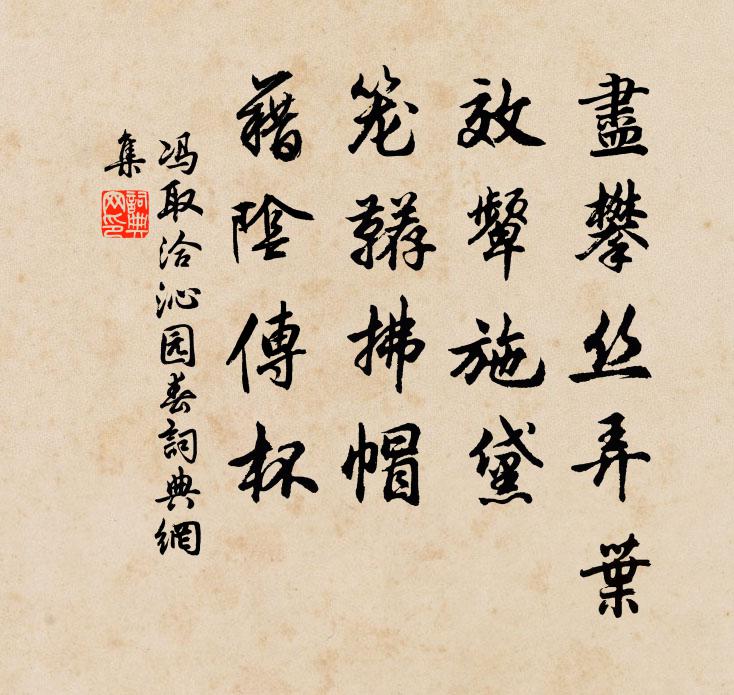 盡攀丝弄葉
效顰施黛
笼鞯拂帽
藉陰傳杯
冯取洽沁园春詞典網
集
詞典
网印